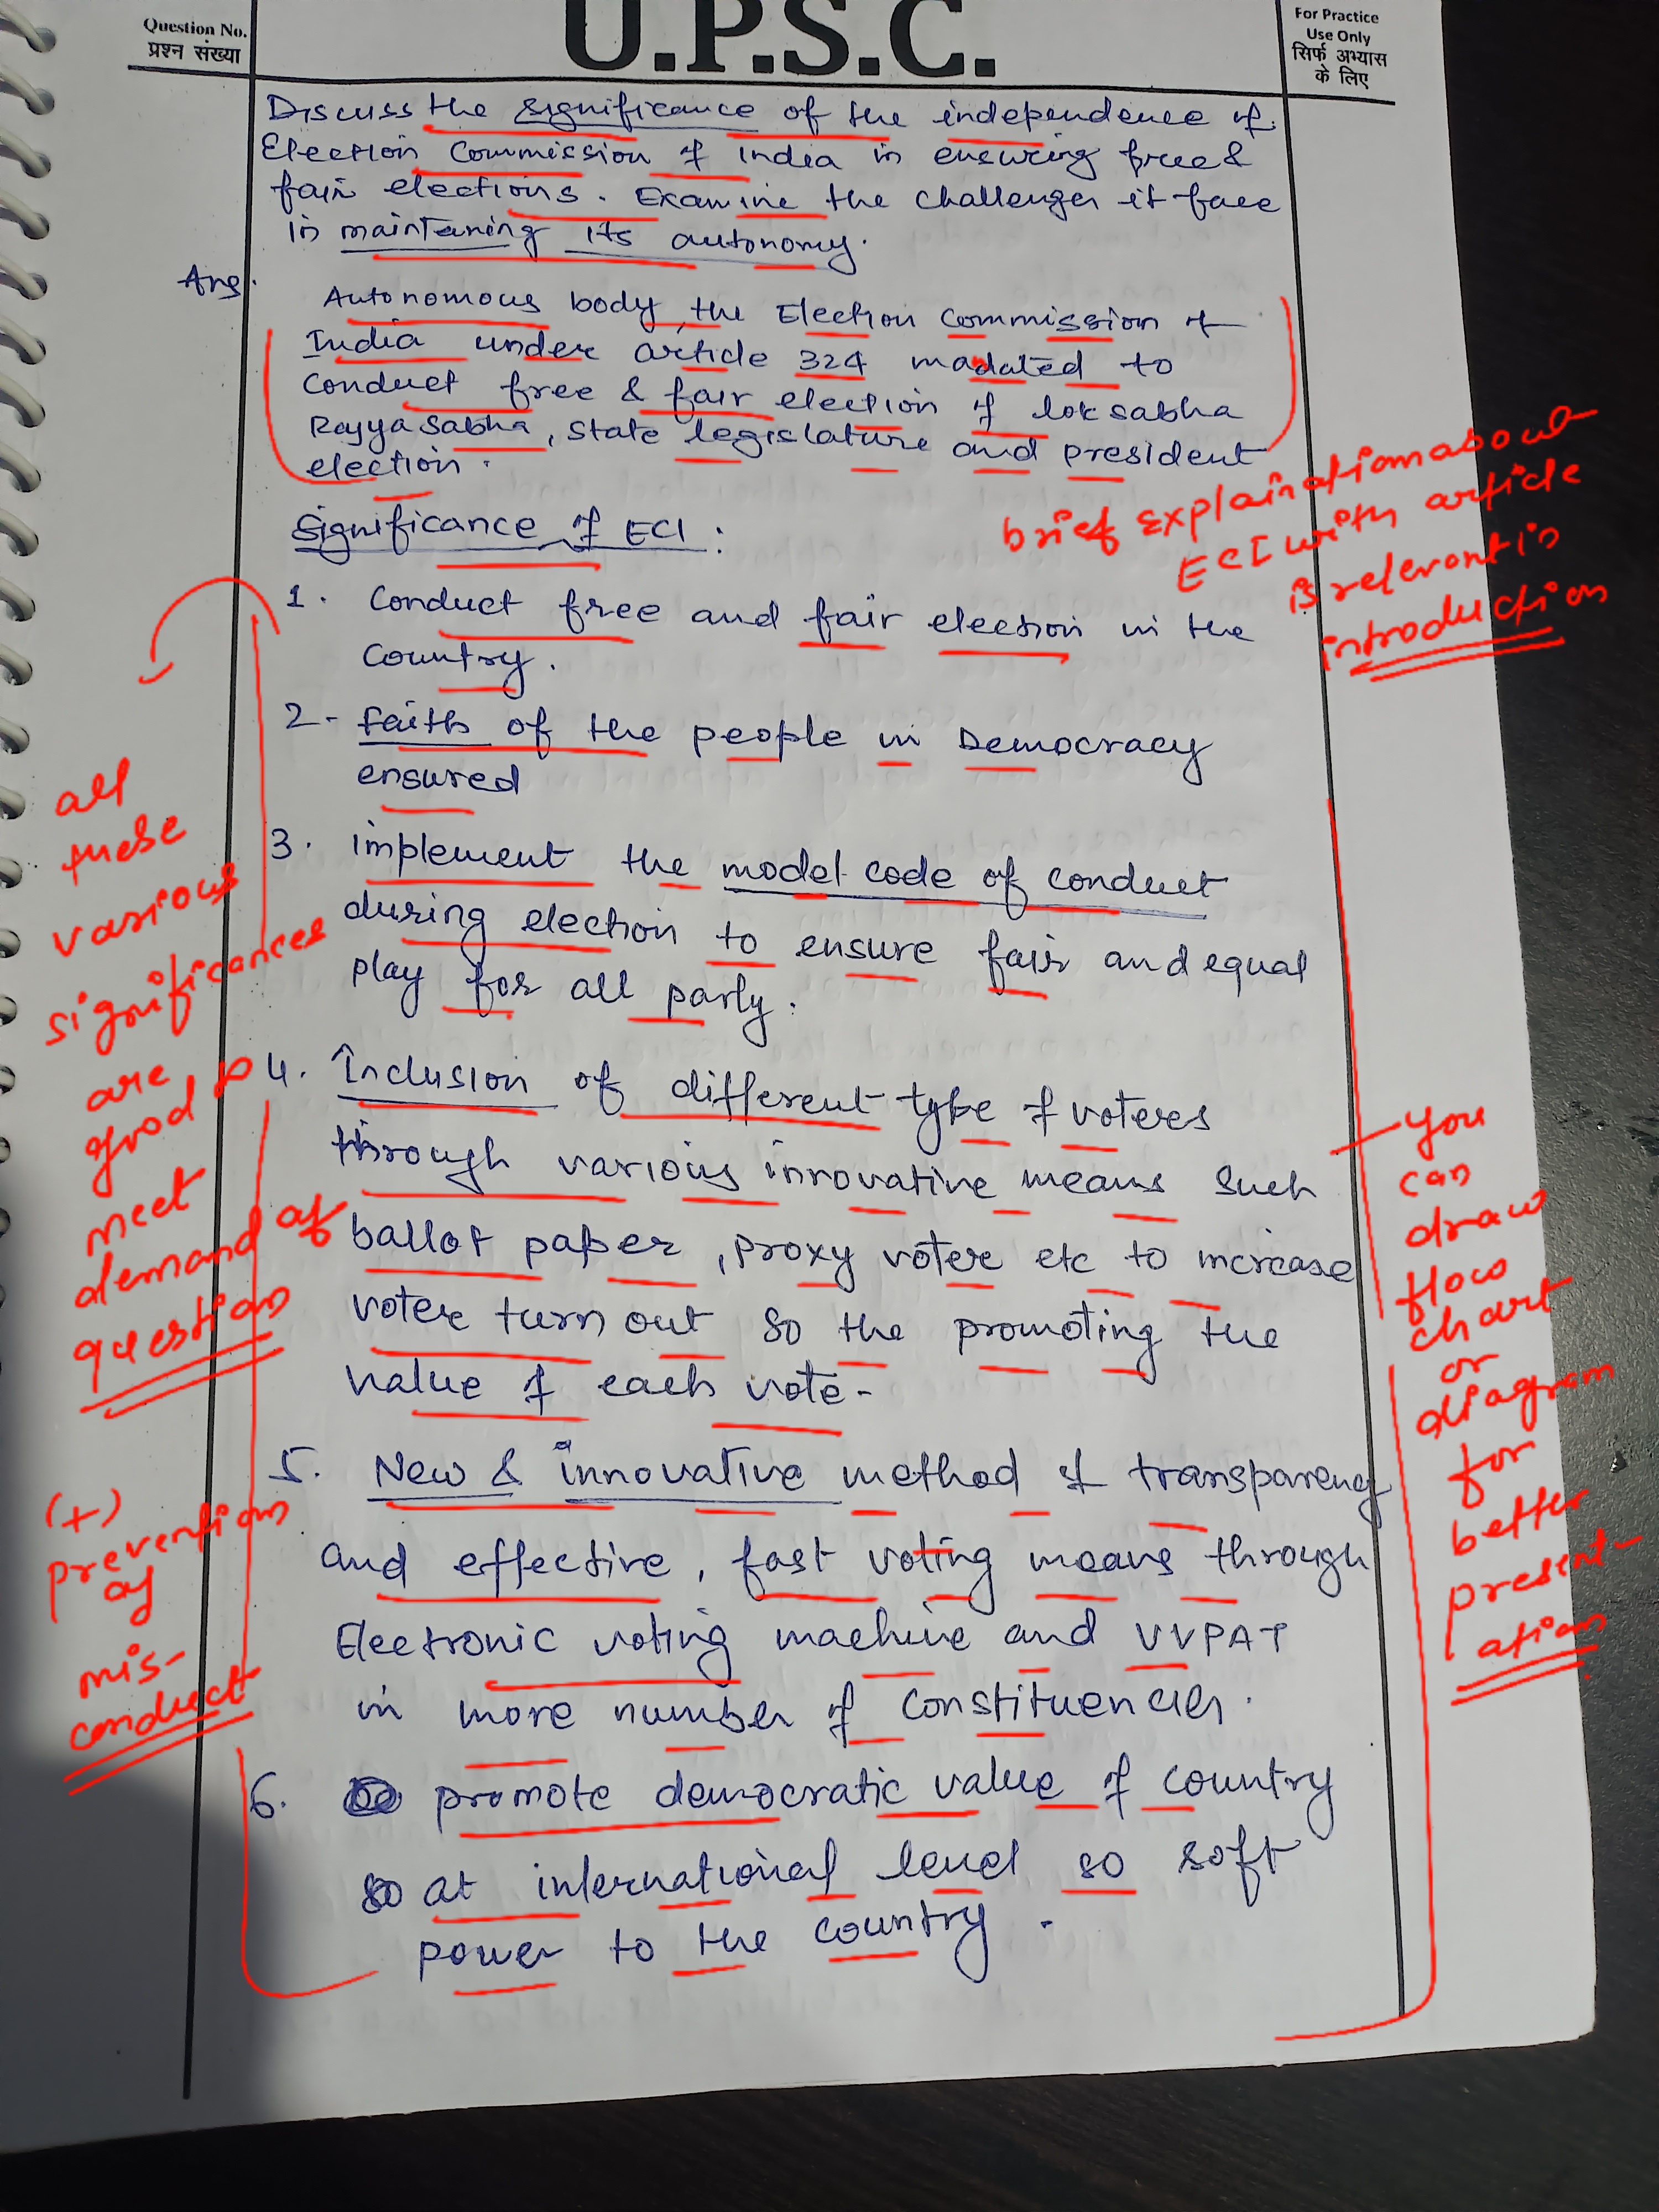 Question No.
प्रश्न संख्या
U.P.S.C.
For Practice
Use Only
सिर्फ अभ्यास
के लिए
Discuss the significance of the independence of
Election Commission of India in ensuring free &
fair elections. Examine the challenges it face
in maintaning its autonomy.
Ans.
Autonomous body, the Election Commission of
India under article 324 madated to
conduct free & fair election of loksabha
Rajya Sabha, state legislature and president
election.
brief explaination about
ECI with article
is relevant in
introduction
Significance of ECI :
1. Conduct free and fair election in the
country.
2- Faith of the people in Democracy
ensured
3. implement the model code of conduct
during election to ensure fair and equal
play for all party.
4. Inclusion of different type of voteres
through various innovative means such
ballot paper, proxy votere etc to increase
votere turn out so the promoting the
value of each vote-
5. New & innovative method of transparency
and effective, fast voting means through
Electronic voting machine and VVPAT
in more number of constituencies.
6. promote democratic value of country
so at international level so soft
power to the country.
all
these
various
significances
are
good to
meet
demand of
question
(+)
prevention
of
mis-
conduct
you
can
draw
flow
chart
or
diagram
for
better
present-
ation